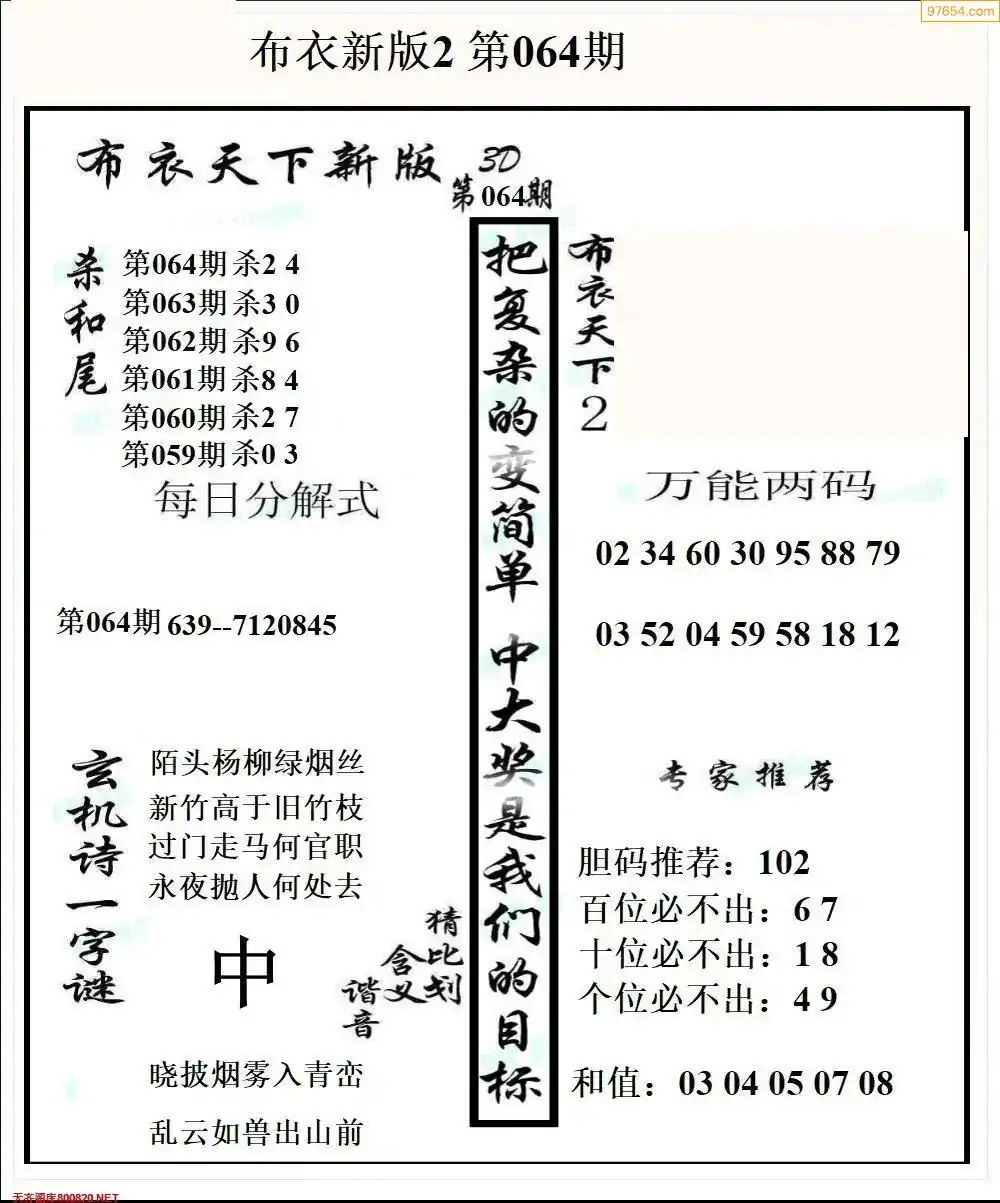 97654.com
布衣新版2 第064期
布衣天下新版 3D
第064期
杀和尾
第064期 杀2 4
第063期 杀3 0
第062期 杀9 6
第061期 杀8 4
第060期 杀2 7
第059期 杀0 3
每日分解式
第064期 639--7120845
玄机诗一字谜
陌头杨柳绿烟丝
新竹高于旧竹枝
过门走马何官职
永夜抛人何处去
中
猜比划
含义
谐音
晓披烟雾入青峦
乱云如兽出山前
把复杂的变简单 中大奖是我们的目标
布衣天下2
万能两码
02 34 60 30 95 88 79
03 52 04 59 58 18 12
专家推荐
胆码推荐：102
百位必不出：6 7
十位必不出：1 8
个位必不出：4 9
和值：03 04 05 07 08
天齐图库800820.NET